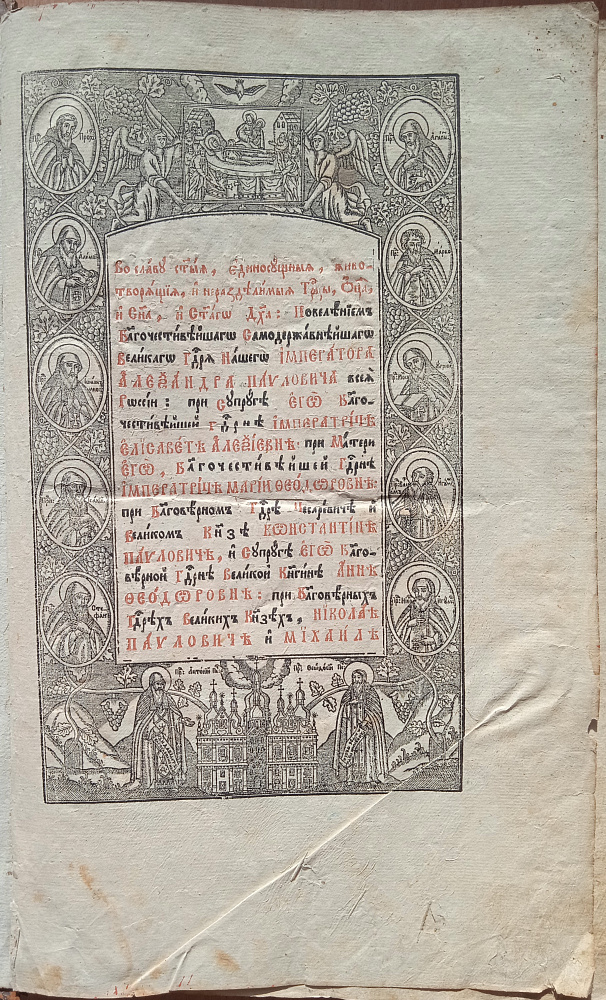 Во славу ст҃ыѧ, є҆диносꙋ́щныѧ, живо-
творѧ́щїѧ, и҆ неразⷣѣли́мыѧ Трⷪ҇цы, Ѻ҆ц҃а̀,
и҆ Сн҃а, и҆ Ст҃а́гѡ Дх҃а: Повелѣ́нїемъ
Бл҃гочести́вѣйшагѡ Самодержа́внѣйшагѡ
Вели́кагѡ Гдⷭ҇рѧ На́шегѡ ІМПЕРАТОРА
АЛЕѮАНДРА ПАѴЛОВИЧА всеѧ̀
Рѡссі́и: при Сꙋпрꙋ́гѣ ЄГѠ̀ Бл҃го-
чести́вѣйшей гдⷭ҇рнѣ ІМПЕРАТРИЦѢ
ЄЛІСАВЕТѢ АЛЕѮІЕВНѢ: при Ма́тери
ЄГѠ̀, Бл҃гочести́вѣйшей Гдⷭ҇рнѣ
ІМПЕРАТРИЦѢ МАРІИ ѲЕѺДѠРОВНѢ:
при Бл҃говѣ́рномъ Гдⷭ҇рѣ Цесаре́вичѣ и҆
Вели́комъ Кн҃зѣ КѠНСТАНТІНѢ
ПАѴЛОВИЧѢ, и҆ Сꙋпрꙋ́гѣ ЄГѠ̀ Бл҃го-
вѣ́рной Гдⷭ҇рнѣ Вели́кой Кнѧги́нѣ АННѢ
ѲЕѺДѠРОВНѢ: при Бл҃говѣ́рныхъ
Гдⷭ҇рѣхъ Вели́кихъ Кн҃зѣхъ, НІКОЛАѢ
ПАѴЛОВИЧѢ и҆ МІХАИЛѢ
Прⷣ: Антоній Пе: Прⷣ: Ѳеодосій Пе: